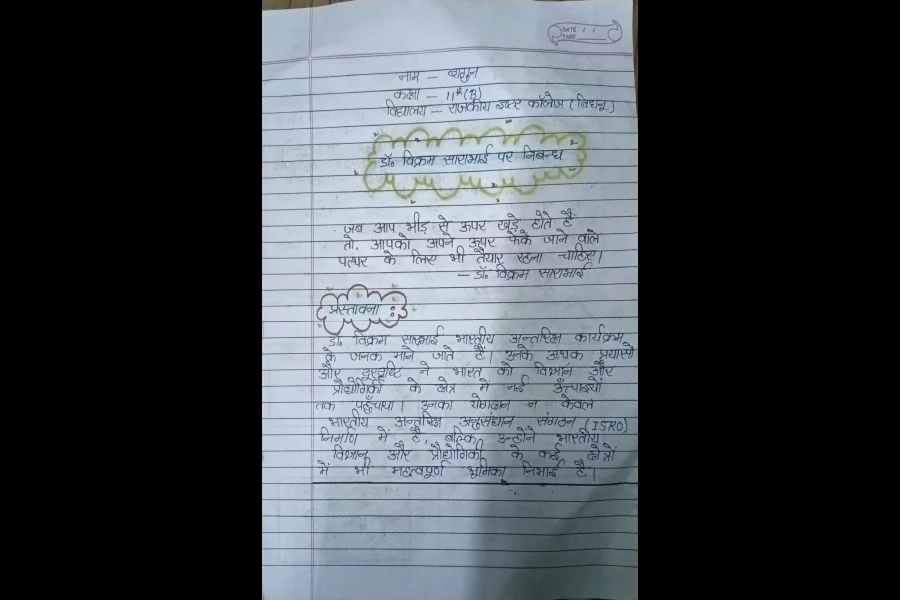 DATE / /
PAGE
नाम – शगुन
कक्षा – 11th (B)
विद्यालय – राजकीय इण्टर कॉलेज (विधनू)
डॉ० विक्रम साराभाई पर निबन्ध
जब आप भीड़ से ऊपर खड़े होते हैं
तो, आपको अपने ऊपर फेंके जाने वाले
पत्थर के लिए भी तैयार रहना चाहिए।
– डॉ० विक्रम साराभाई
प्रस्तावना :
डॉ० विक्रम साराभाई भारतीय अन्तरिक्ष कार्यक्रम
के जनक माने जाते हैं। उनके अथक प्रयासों
और दूरदृष्टि ने भारत को विज्ञान और
प्रौद्योगिकी के क्षेत्र में नई ऊँचाइयों
तक पहुँचाया। उनका योगदान न केवल
भारतीय अन्तरिक्ष अनुसंधान संगठन (ISRO)
निर्माण में है, बल्कि उन्होंने भारतीय
विज्ञान और प्रौद्योगिकी के कई क्षेत्रों
में भी महत्वपूर्ण भूमिका निभाई है।